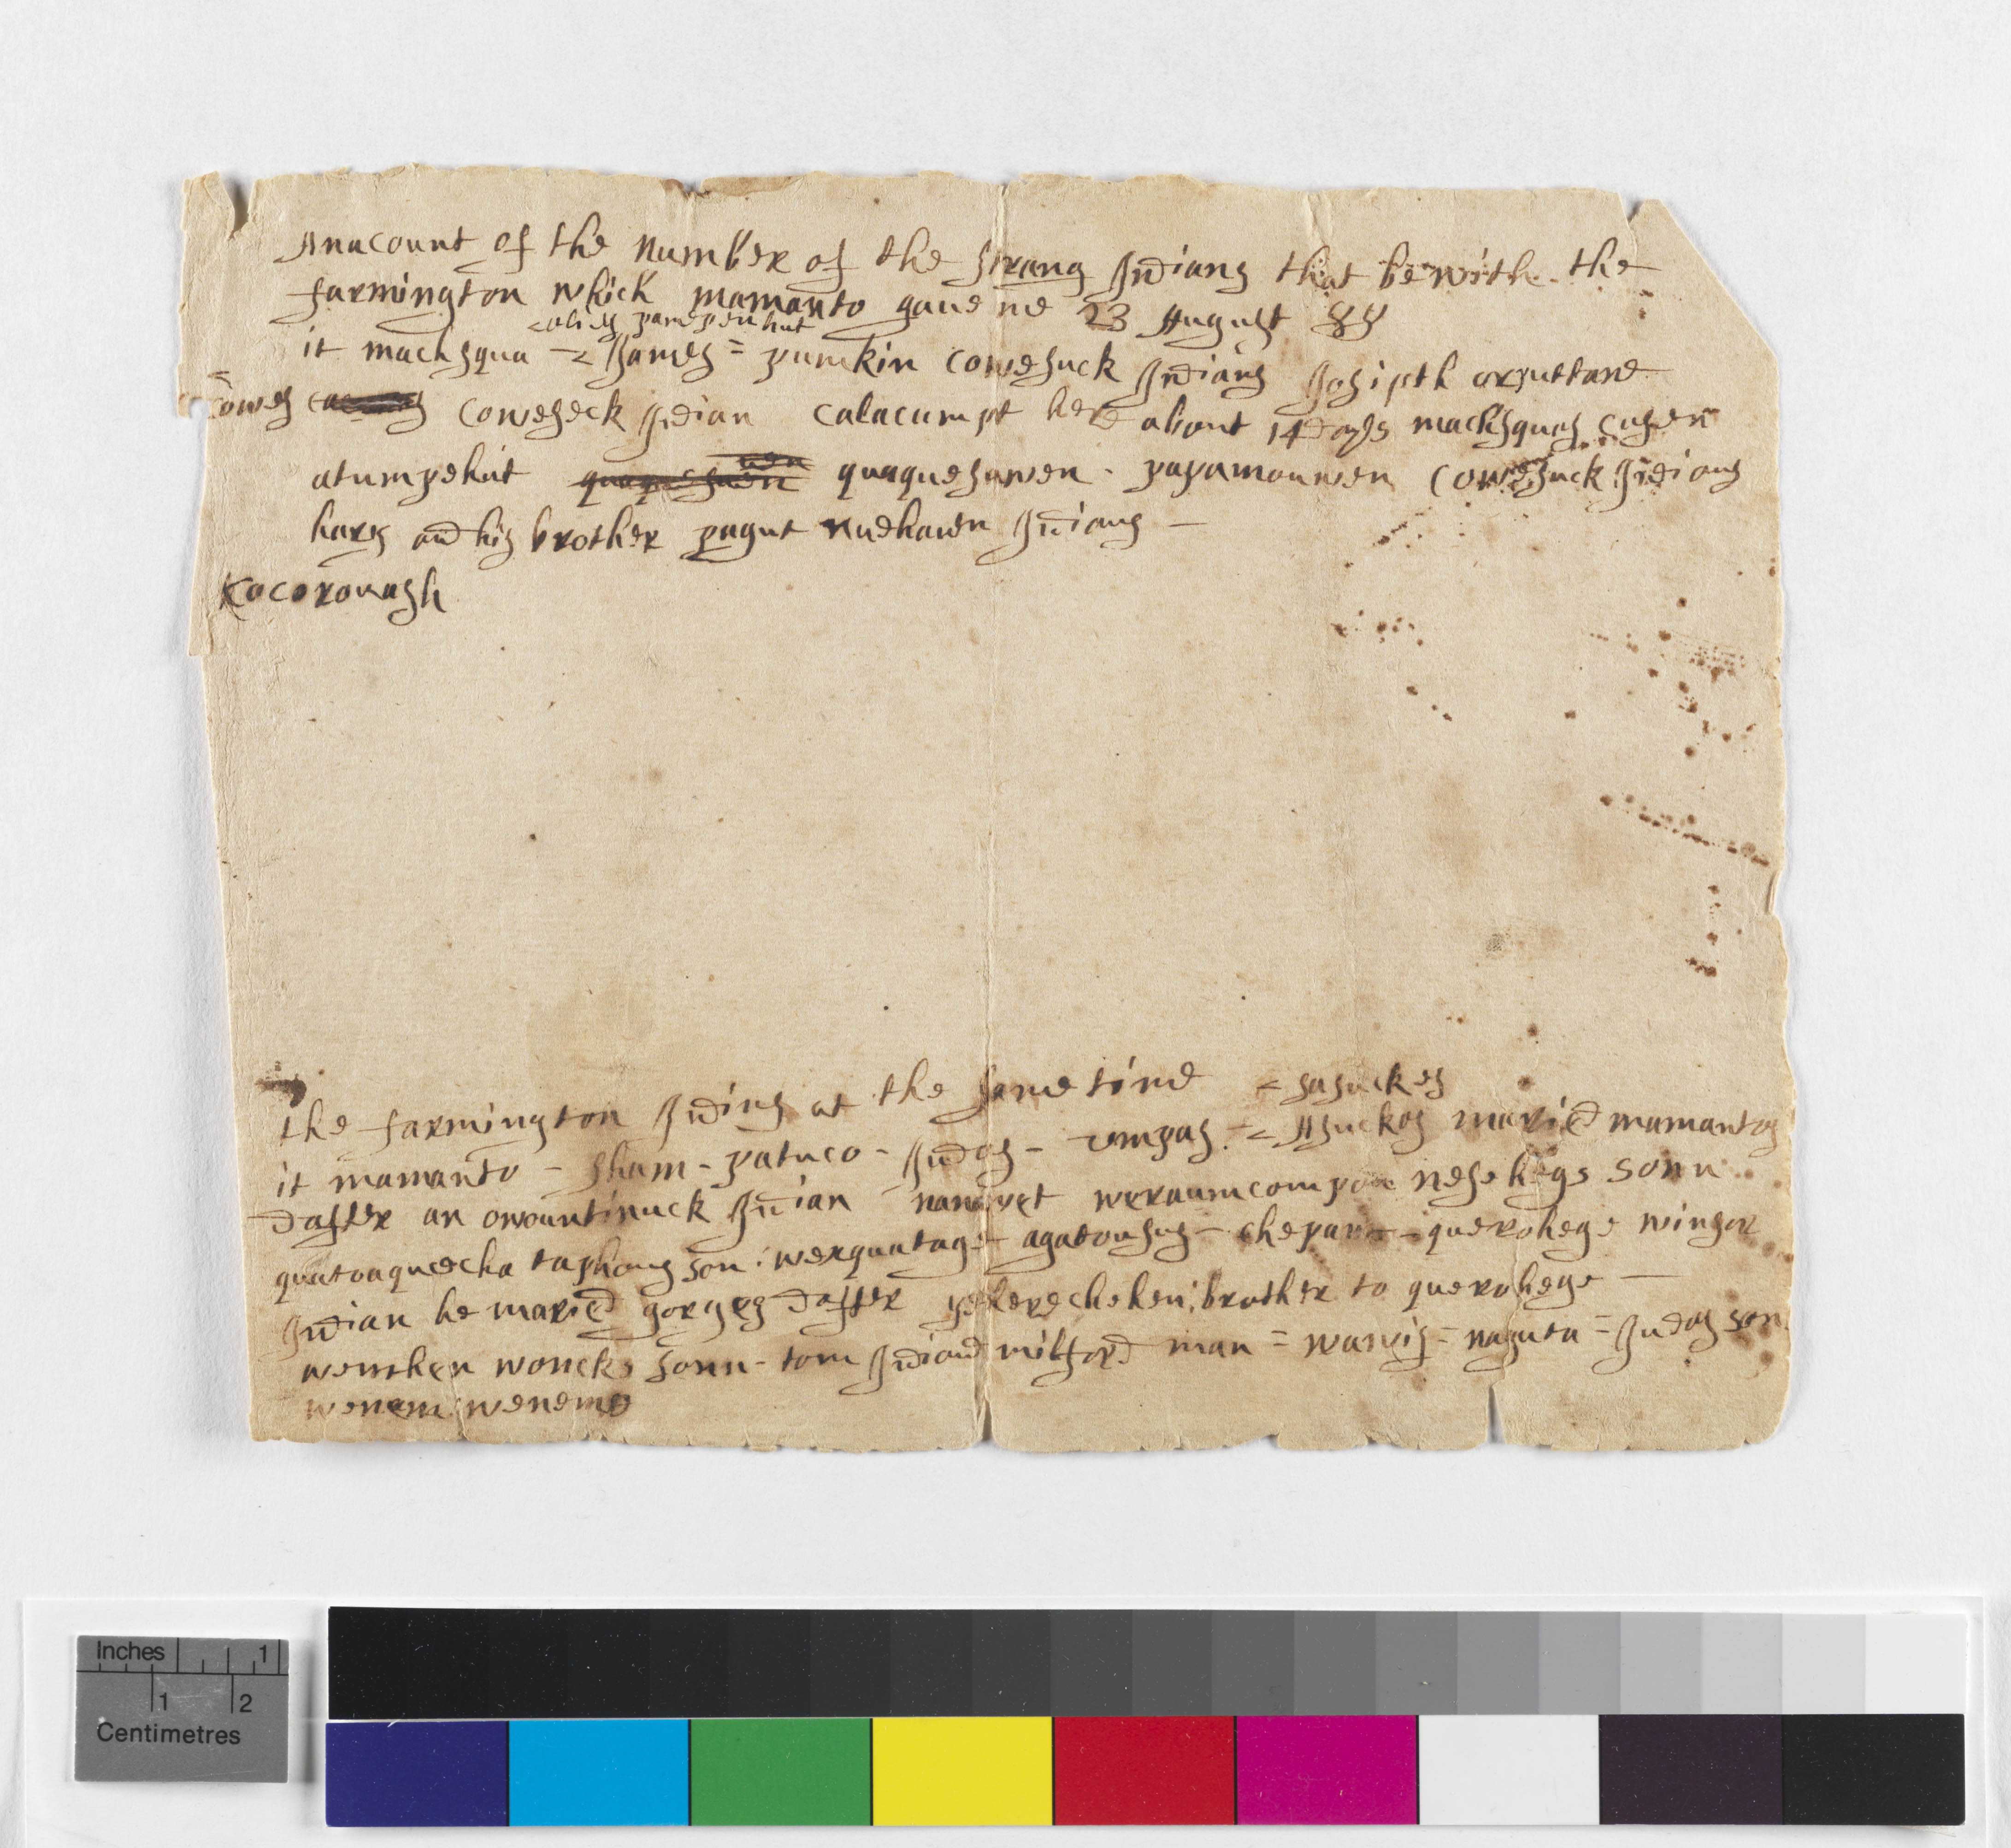 Anacount of the number of the strang Indians that be with the
farmington which mamanto gaue me 23 August 88
alies pamepenhut
it machsqua - James = pumkin cowesuck Indians Josipth orputtane
cowes coweseck Indian calacumpt here about 14 days machsquas cusen
uen
atumpehut quaquesuen quaquesawen - papamouwen cowesuck Indians
hary and his brother pagut nuehauen Indians -
Kocorouash
the farmington Indins at the same time sasuckes
it mamanto - sham - patuco - Judas - umpas - Asuckos maried mamantos
dafter an owountinuck Indian nanawet weraumcompou nesehegs sonn
quatoaquecha taphous son : werquatage - agatousus - chepaus - querohege winsor
Indian he maried gorges dafter pekerecheken : brother to querohege -
wemhen woncks sonn - tom Indiand milford man = warvis = naguta = Judas son
wenem wenemo
Inches 1
1 2
Centimetres